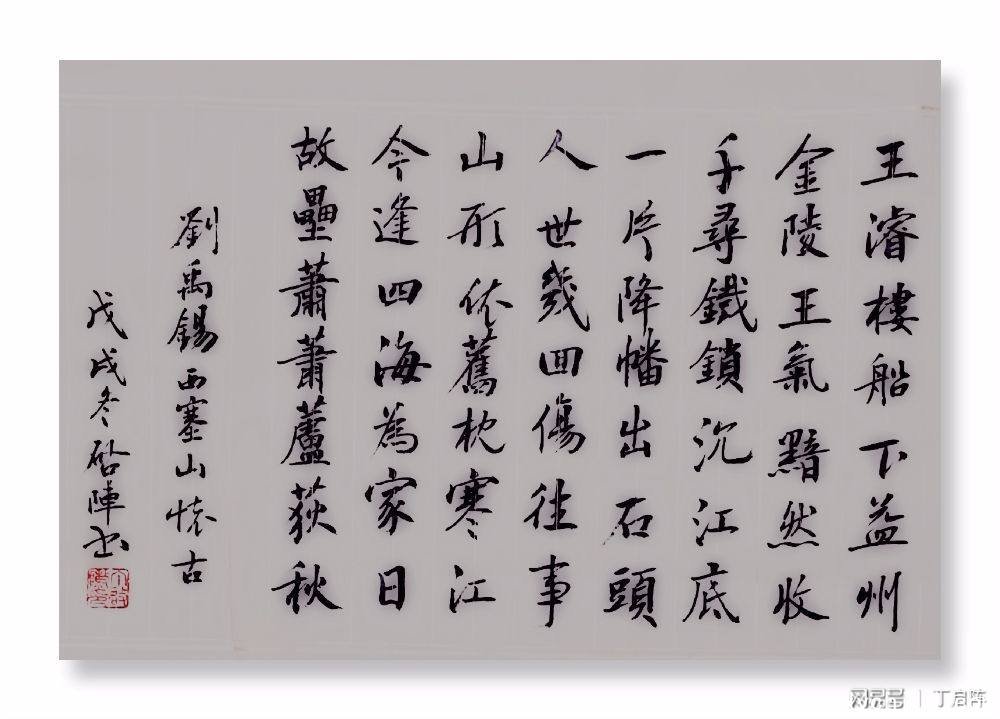 王濬樓船下益州
金陵王氣黯然收
千尋鐵鎖沉江底
一片降幡出石頭
人世幾回傷往事
山形依舊枕寒江
今逢四海為家日
故壘蕭蕭蘆荻秋
劉禹錫西塞山懷古
戊戌冬啓陣书
网易号 | 丁启阵